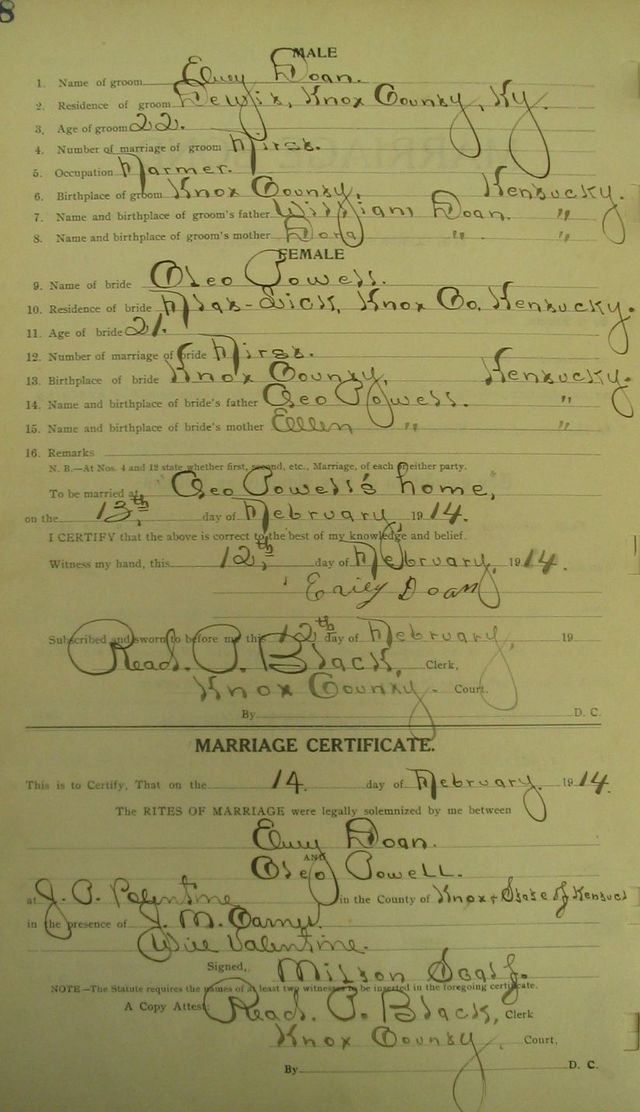 8
MALE
1. Name of groom Elvey Doan.
2. Residence of groom Knox County, Ky.
3. Age of groom 22.
4. Number of marriage of groom First.
5. Occupation Farmer.
6. Birthplace of groom Knox County, Kentucky.
7. Name and birthplace of groom's father William Doan. " "
8. Name and birthplace of groom's mother Dora " " " "
FEMALE
9. Name of bride Cleo Powell.
10. Residence of bride Flat-Lick, Knox Co. Kentucky.
11. Age of bride 21.
12. Number of marriage of bride First.
13. Birthplace of bride Knox County, Kentucky.
14. Name and birthplace of bride's father Geo Powell. "
15. Name and birthplace of bride's mother Ellen " "
16. Remarks
N. B.—At Nos. 4 and 12 state whether first, second, etc., Marriage, of each or either party.
To be married at Geo Powell's home,
on the 13th, day of February, 1914.
I CERTIFY that the above is correct to the best of my knowledge and belief.
Witness my hand, this 12th, day of February, 1914.
Doan
Subscribed and sworn to before me this 12th day of February, 19
Read. P. Black, Clerk,
Knox County. Court.
By D. C.
MARRIAGE CERTIFICATE.
This is to Certify, That on the 14. day of February. 1914.
The RITES OF MARRIAGE were legally solemnized by me between
Elvey Doan.
AND
Cleo Powell.
at J. P. Valentine in the County of Knox & State of Kentuc
in the presence of J. M.
Will Valentine.
Signed, Milton
NOTE—The Statute requires the names of at least two witnesses to be inserted in the foregoing certificate.
A Copy Attest: Read. P. Black, Clerk
Knox County, Court,
By D. C.